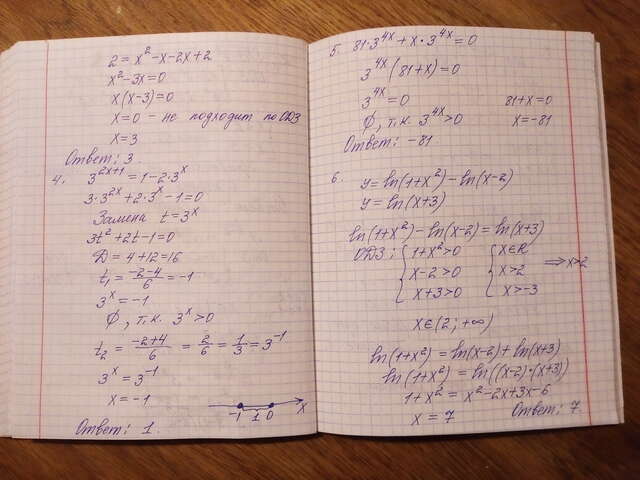 2 = x² - x - 2x + 2
x² - 3x = 0
x(x-3) = 0
x = 0 - не подходит по ОДЗ
x = 3
Ответ: 3.
4. 3^(2x+1) = 1 - 2·3^x
3·3^(2x) + 2·3^x - 1 = 0
Замена t = 3^x
3t² + 2t - 1 = 0
D = 4 + 12 = 16
t₁ = (-2-4)/6 = -1
3^x = -1
∅, т.к. 3^x > 0
t₂ = (-2+4)/6 = 2/6 = 1/3 = 3^(-1)
3^x = 3^(-1)
x = -1
-1 1 0 x
Ответ: 1.
5. 81·3^(4x) + x·3^(4x) = 0
3^(4x) (81 + x) = 0
3^(4x) = 0 81 + x = 0
∅, т.к. 3^(4x) > 0 x = -81
Ответ: -81.
6. y = ln(1+x²) - ln(x-2)
y = ln(x+3)
ln(1+x²) - ln(x-2) = ln(x+3)
ОДЗ: { 1+x² > 0 { x ∈ R
x-2 > 0 x > 2 ⟹ x > 2
x+3 > 0 x > -3
x ∈ (2; +∞)
ln(1+x²) = ln(x-2) + ln(x+3)
ln(1+x²) = ln((x-2)·(x+3))
1 + x² = x² - 2x + 3x - 6
x = 7 Ответ: 7.